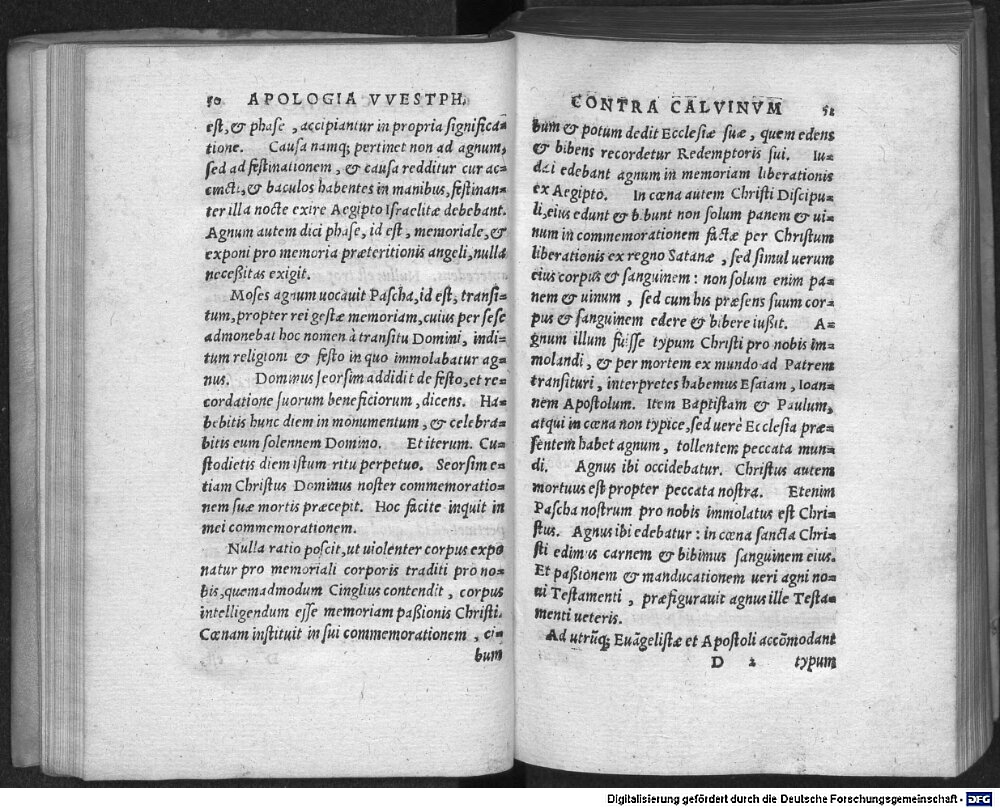 50 APOLOGIA VVESTPH.
est, & phase, accipiantur in propria significa=
tione. Causa namq; pertinet non ad agnum,
sed ad festinationem, & causa redditur cur ac=
cincti, & baculos habentes in manibus, festinan=
ter illa nocte exire Aegipto Israelitæ debebant.
Agnum autem dici phase, id est, memoriale, &
exponi pro memoria præteritionis angeli, nulla
necessitas exigit.
Moses agnum uocauit Pascha, id est, transi=
tum, propter rei gestæ memoriam, cuius per sese
admonebat hoc nomen à transitu Domini, indi=
tum religioni & festo in quo immolabatur ag=
nus. Dominus seorsim addidit de festo, et re=
cordatione suorum beneficiorum, dicens. Ha=
bebitis hunc diem in monumentum, & celebra=
bitis eum solennem Domino. Et iterum. Cu=
stodietis diem istum ritu perpetuo. Seorsim e=
tiam Christus Dominus noster commemoratio=
nem suæ mortis præcepit. Hoc facite inquit in
mei commemorationem.
Nulla ratio poscit, ut uiolenter corpus expo
natur pro memoriali corporis traditi pro no=
bis, quemadmodum Cinglius contendit, corpus
intelligendum esse memoriam passionis Christi.
Cœnam instituit in sui commemorationem, ci=
bum
CONTRA CALVINVM 51
bum & potum dedit Ecclesiæ suæ, quem edens
& bibens recordetur Redemptoris sui. Iu=
dai edebant agnum in memoriam liberationis
ex Aegipto. In cœna autem Christi Discipu=
li, eius edunt & bibunt non solum panem & ui=
num in commemorationem factæ per Christum
liberationis ex regno Satanæ, sed simul uerum
eius corpus & sanguinem: non solum enim pa=
nem & uinum, sed cum his præsens suum cor=
pus & sanguinem edere & bibere iussit. A=
gnum illum fuisse typum Christi pro nobis im=
molandi, & per mortem ex mundo ad Patrem
transituri, interpretes habemus Esaiam, Ioan=
nem Apostolum. Item Baptistam & Paulum,
atqui in cœna non typice, sed uerè Ecclesia præ=
sentem habet agnum, tollentem peccata mun=
di. Agnus ibi occidebatur. Christus autem
mortuus est propter peccata nostra. Etenim
Pascha nostrum pro nobis immolatus est Chri=
stus. Agnus ibi edebatur: in cœna sancta Chri=
sti edimus carnem & bibimus sanguinem eius.
Et passionem & manducationem ueri agni no=
ui Testamenti, præfigurauit agnus ille Testa=
menti ueteris.
Ad utrũq; Euãgelistæ et Apostoli accõmodant
D 2 typum
Digitalisierung gefördert durch die Deutsche Forschungsgemeinschaft - DFG